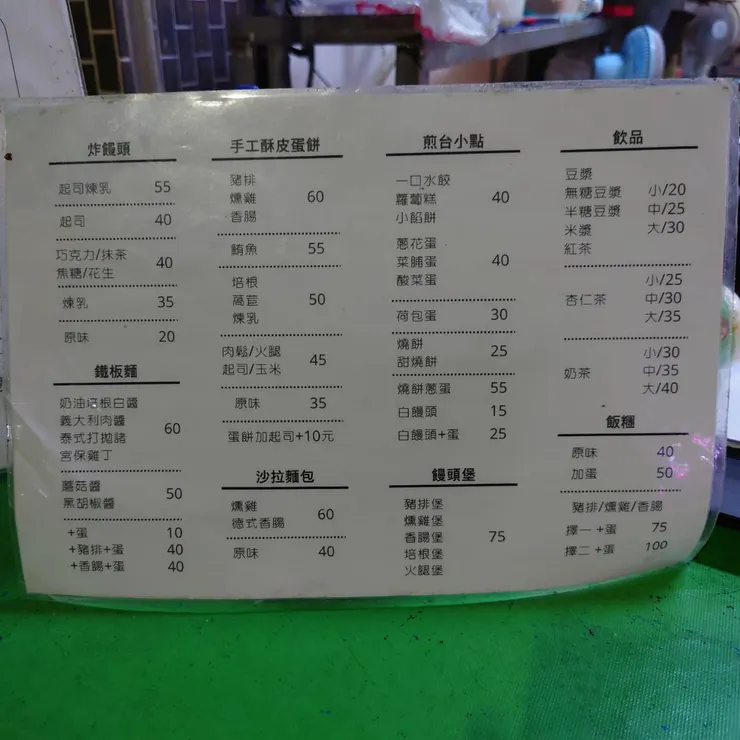 炸饅頭
起司煉乳 55
起司 40
巧克力/抹茶
焦糖/花生 40
煉乳 35
原味 20
鐵板麵
奶油培根白醬
義大利肉醬
泰式打拋豬
宮保雞丁
60
蘑菇醬
黑胡椒醬
50
+蛋 10
+豬排+蛋 40
+香腸+蛋 40
手工酥皮蛋餅
豬排
燻雞
香腸
60
鮪魚 55
培根
萵苣
煉乳
50
肉鬆/火腿
起司/玉米
45
原味 35
蛋餅加起司+10元
沙拉麵包
燻雞
德式香腸
60
原味 40
煎台小點
一口水餃
蘿蔔糕
小餡餅
40
蔥花蛋
菜脯蛋
酸菜蛋
40
荷包蛋 30
燒餅
甜燒餅
25
燒餅蔥蛋 55
白饅頭 15
白饅頭+蛋 25
饅頭堡
豬排堡
燻雞堡
香腸堡
培根堡
火腿堡
75
飲品
豆漿
無糖豆漿
半糖豆漿
米漿
紅茶
小/20
中/25
大/30
杏仁茶
小/25
中/30
大/35
奶茶
小/30
中/35
大/40
飯糰
原味 40
加蛋 50
豬排/燻雞/香腸
擇一+蛋 75
擇二+蛋 100